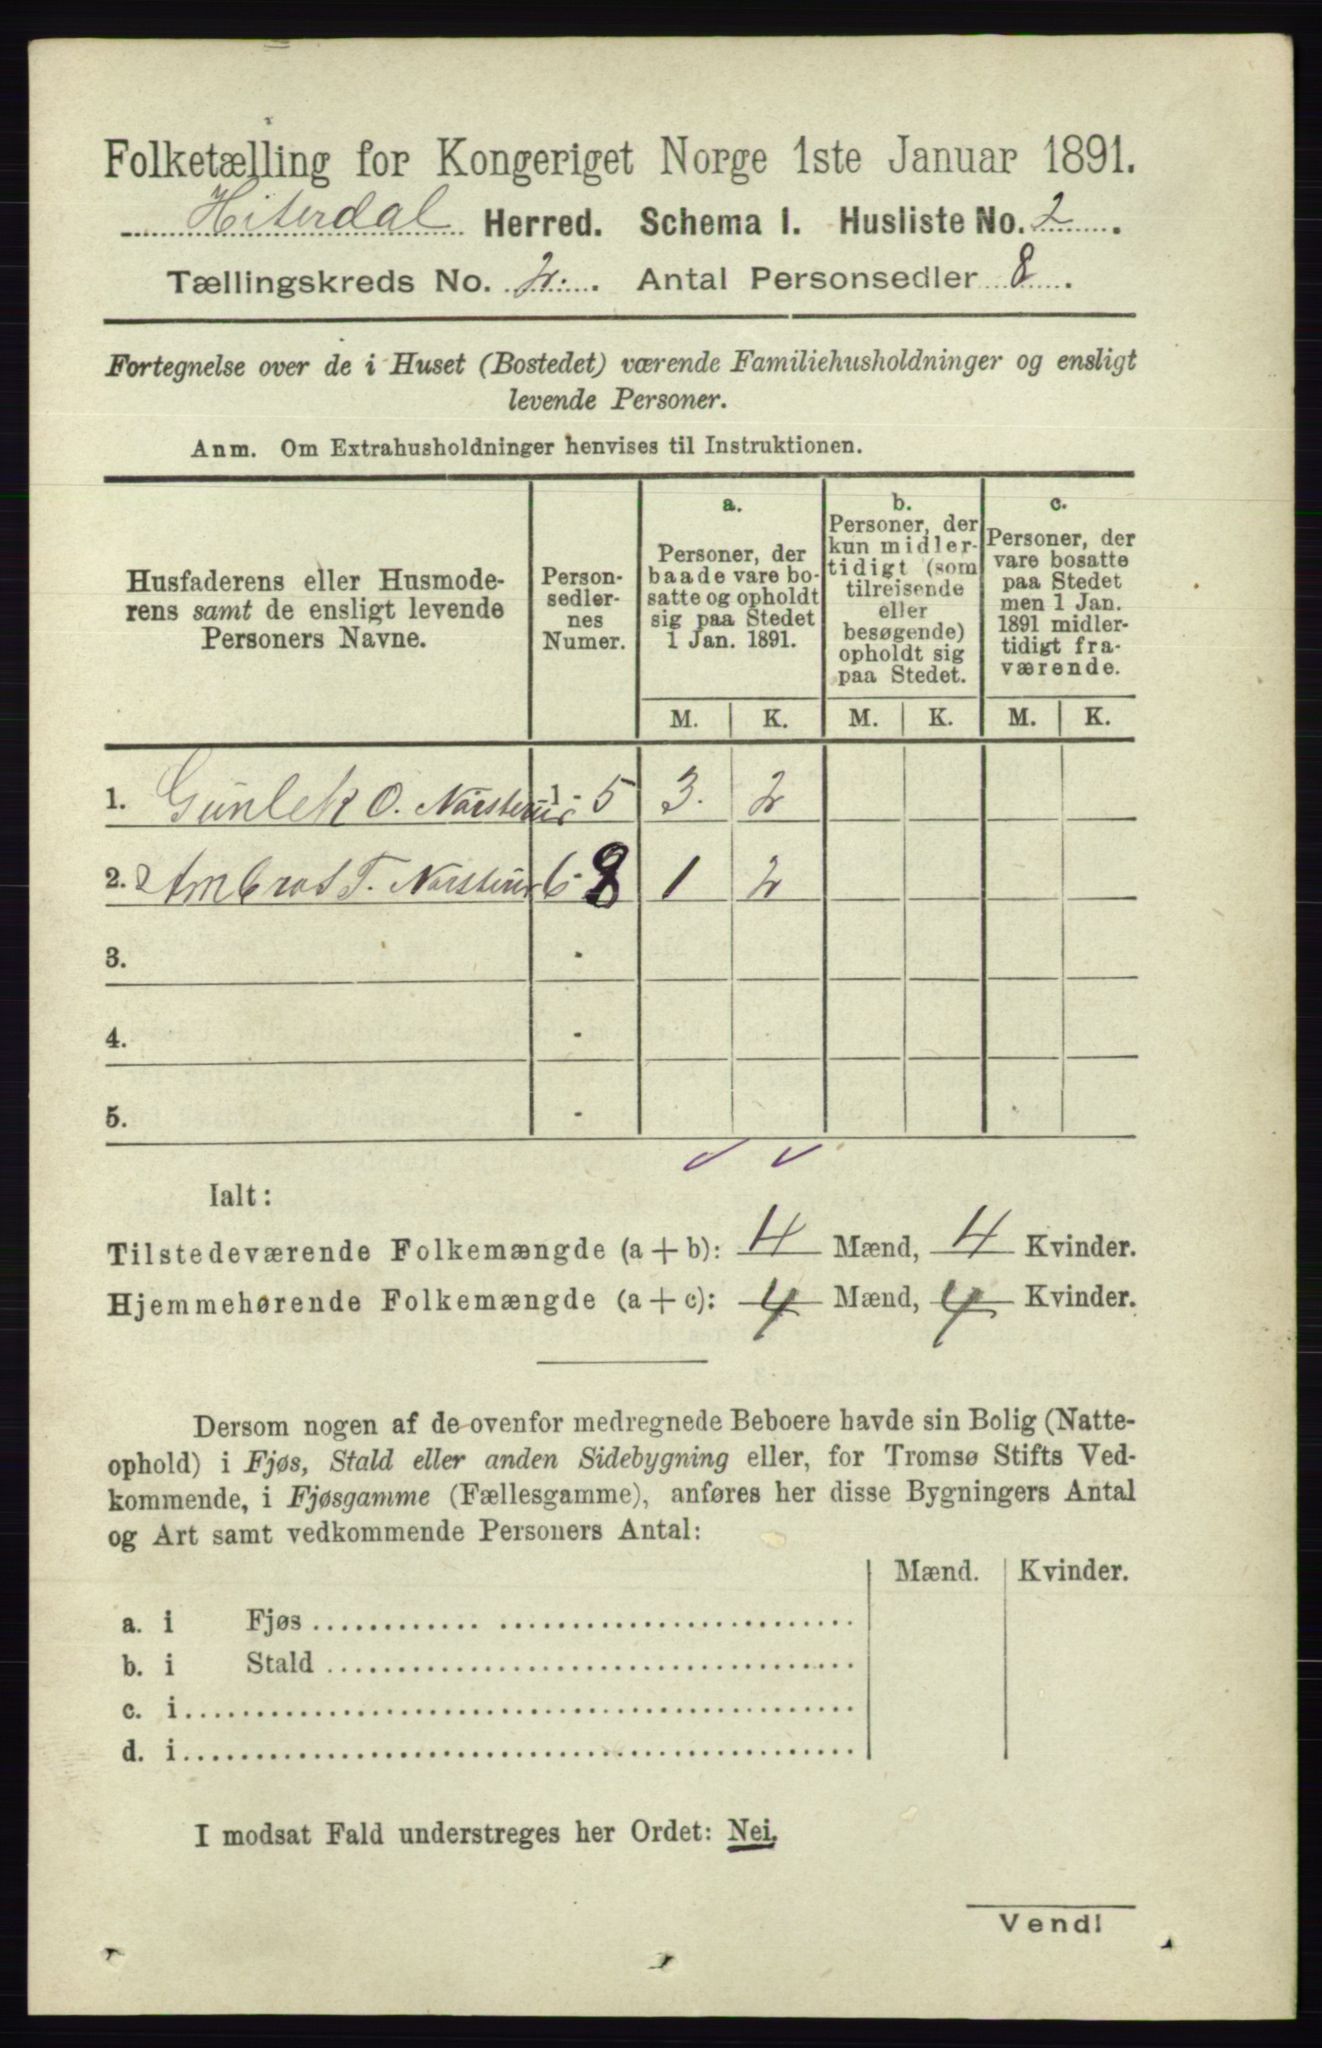 Folketælling for Kongeriget Norge 1ste Januar 1891.
Hiterdal Herred. Schema I. Husliste No. 2.
Tællingskreds No. 2. Antal Personsedler 8.
Fortegnelse over de i Huset (Bostedet) værende Familiehusholdninger og ensligt
levende Personer.
Anm. Om Extrahusholdninger henvises til Instruktionen.
Husfaderens eller Husmode-
rens samt de ensligt levende
Personers Navne.
Person-
sedler-
nes
Numer.
a.
Personer, der
baade vare bo-
satte og opholdt
sig paa Stedet
1 Jan. 1891.
b.
Personer, der
kun midler-
tidigt (som
tilreisende
eller
besøgende)
opholdt sig
paa Stedet.
c.
Personer, der
vare bosatte
paa Stedet
men 1 Jan.
1891 midler-
tidigt fra-
værende.
M. K. M. K. M. K.
1. Gunlek O. Norsterud 1 - 5 3. 2
2. Ambros T. Norsterud 6 - 8 1 2
3. -
4. -
5. -
Ialt:
Tilstedeværende Folkemængde (a + b): 4 Mænd, 4 Kvinder.
Hjemmehørende Folkemængde (a + c): 4 Mænd, 4 Kvinder.
Dersom nogen af de ovenfor medregnede Beboere havde sin Bolig (Natte-
ophold) i Fjøs, Stald eller anden Sidebygning eller, for Tromsø Stifts Ved-
kommende, i Fjøsgamme (Fællesgamme), anføres her disse Bygningers Antal
og Art samt vedkommende Personers Antal:
Mænd. Kvinder.
a. i Fjøs
b. i Stald
c. i
d. i
I modsat Fald understreges her Ordet: Nei.
Vend!